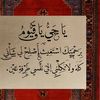 يَا حَيُّ يَا قَيُّومُ
بِرَحْمَتِكَ أَسْتَغِيثُ أَصْلِحْ لِي شَأْنِي
كُلَّهُ وَلَا تَكِلْنِي إِلَى نَفْسِي طَرْفَةَ عَيْنٍ